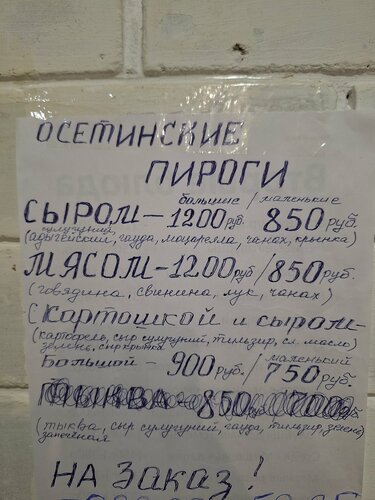 ОСЕТИНСКИЕ
ПИРОГИ
большие / маленькие
СЫРОМ – 1200 руб. 850 руб.
сулугуний
(адыгейский, гауда, моцарелла, чанах, крынка)
МЯСОМ – 1200 руб / 850 руб.
(говядина, свинина, лук, чанах)
С КАРТОШКОЙ и сыром –
(картофель, сыр сулугуний, тильзир, сл. масло)
зелень, сыр крынка
Большой – 900 руб. / маленький 750 руб.
ТЫКВА – 850 700
(тыква, сыр сулугуний, гауда, тильзир, зелень)
запечёная
НА ЗАКАЗ!